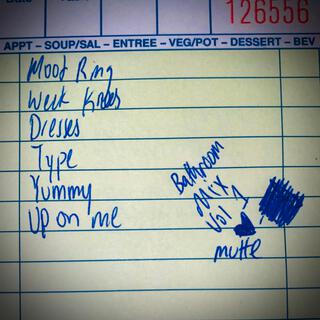 Date
126556
APPT – SOUP/SAL – ENTREE – VEG/POT – DESSERT – BEV
Mood Ring
Weak Knees
Dresses
Type
Yummy
Up on me
Bathroom
Mix
Vol 1
mutte